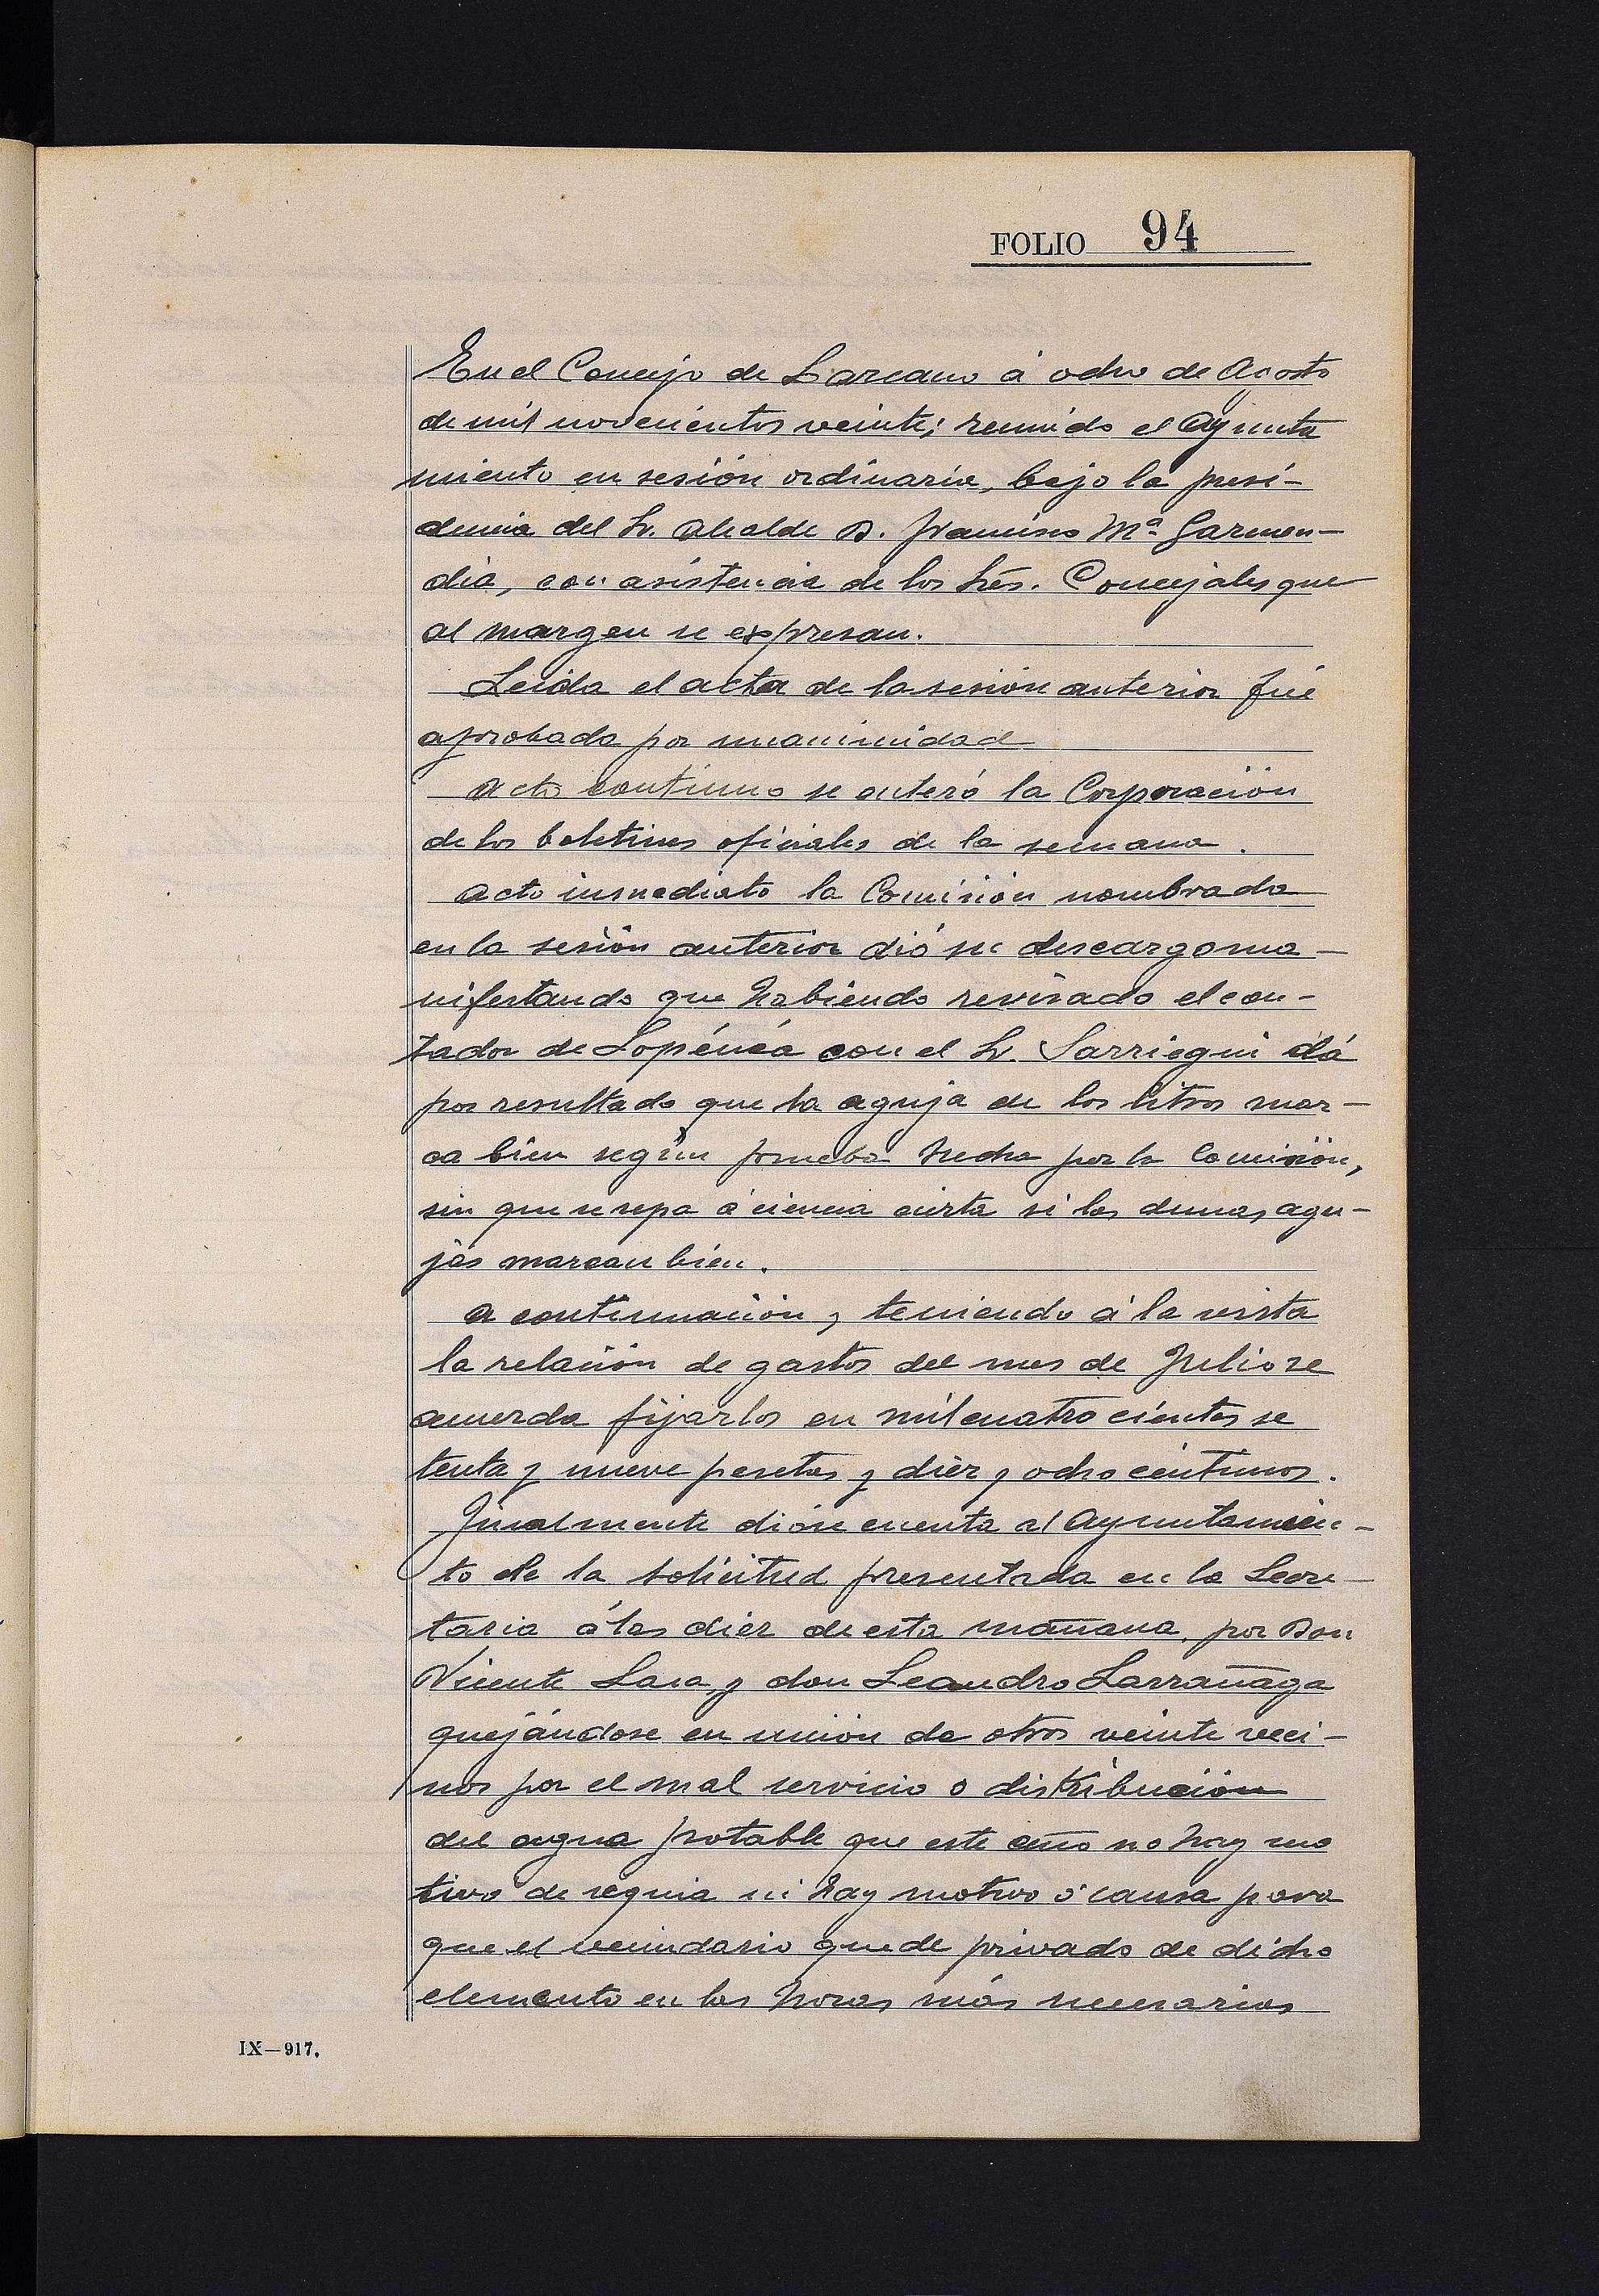 FOLIO 94
En el Concejo de Lazcano á ocho de Agosto
de mil novecientos veinte; reunido el Ayunta
miento en sesión ordinaria, bajo la presi-
dencia del Sr. Alcalde D. Francisco Mª Garmen-
dia, con asistencia de los Srés. Concejales que
al margen se expresan.
Leida el acta de la sesión anterior fué
aprobada por unanimidad
Acto continuo se enteró la Corporación
de los boletines oficiales de la semana.
Acto inmediato la Comisión nombrada
en la sesión anterior dió su descargo ma-
nifestando que habiendo revisado el con-
tador de con el Sr. Sarriegui dá
por resultado que la aguja de los litros mar-
ca bien según prueba hecha por la Comisión,
sin que se sepa á ciencia cierta si las demas agu-
jas marcan bien.
A continuación y teniendo á la vista
la relación de gastos del mes de Julio se
acuerda fijarlos en mil cuatrocientos se
tenta y nueve pesetas y diez y ocho céntimos.
Igualmente dióse cuenta al Ayuntamien-
to de la solicitud presentada en la Secre-
taria á las diez de esta mañana, por Don
Vicente Lasa y don Leandro Larrañaga
quejándose en unión de otros veinte veci-
nos por el mal servicio o distribución
del agua potable que este año no hay mo
tivo de sequia ni hay motivo ó causa para
que el vecindario quede privado de dicho
elemento en las horas más necesarias
IX—917.